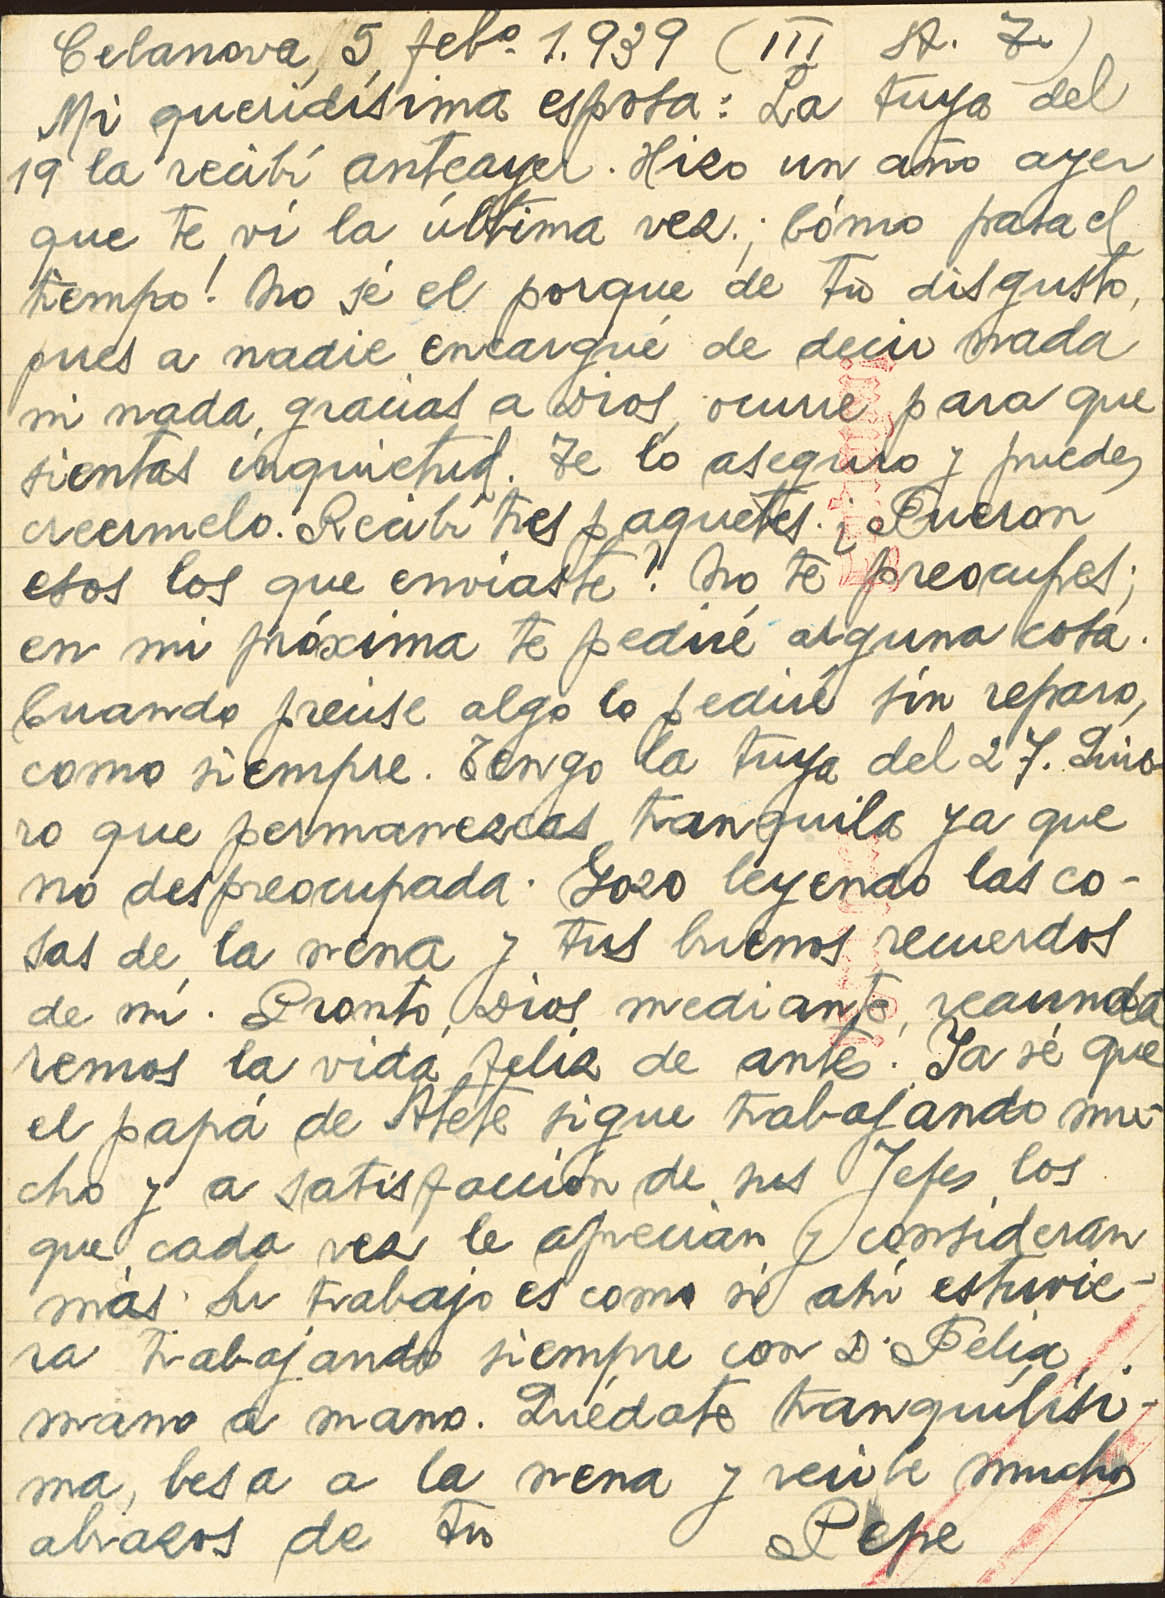 Celanova, 5 febº 1.939 (III At. T)
Mi queridísima esposa: La tuya del
19 la recibí anteayer. Hizo un año ayer
que te ví la última vez. ¡Cómo pasa el
tiempo! No sé el porque de tu disgusto,
pues a nadie encargué de decir nada
ni nada, gracias a Dios, ocurre para que
sientas inquietud. Te lo aseguro y puedes
creermelo. Recibí tres paquetes. ¿Fueron
esos los que enviaste? No te preocupes;
en mi próxima te pediré alguna cosa.
Cuando precise algo lo pediré sin reparo,
como siempre. Tengo la tuya del 27. Quie
ro que permanezcas tranquila ya que
no despreocupada. Gozo leyendo las co-
sas de la nena y tus buenos recuerdos
de mí. Pronto, Dios mediante, reanuda
remos la vida feliz de antes. Ya sé que
el papá de Atete sigue trabajando mu-
cho y a satisfacción de sus Jefes los
que cada vez le aprecian y consideran
más. Su trabajo es como si ahí estuvie-
ra trabajando siempre con D. Felix,
mano a mano. Quédate tranquilísi-
ma, besa a la nena y recibe muchos
abrazos de tu Pepe